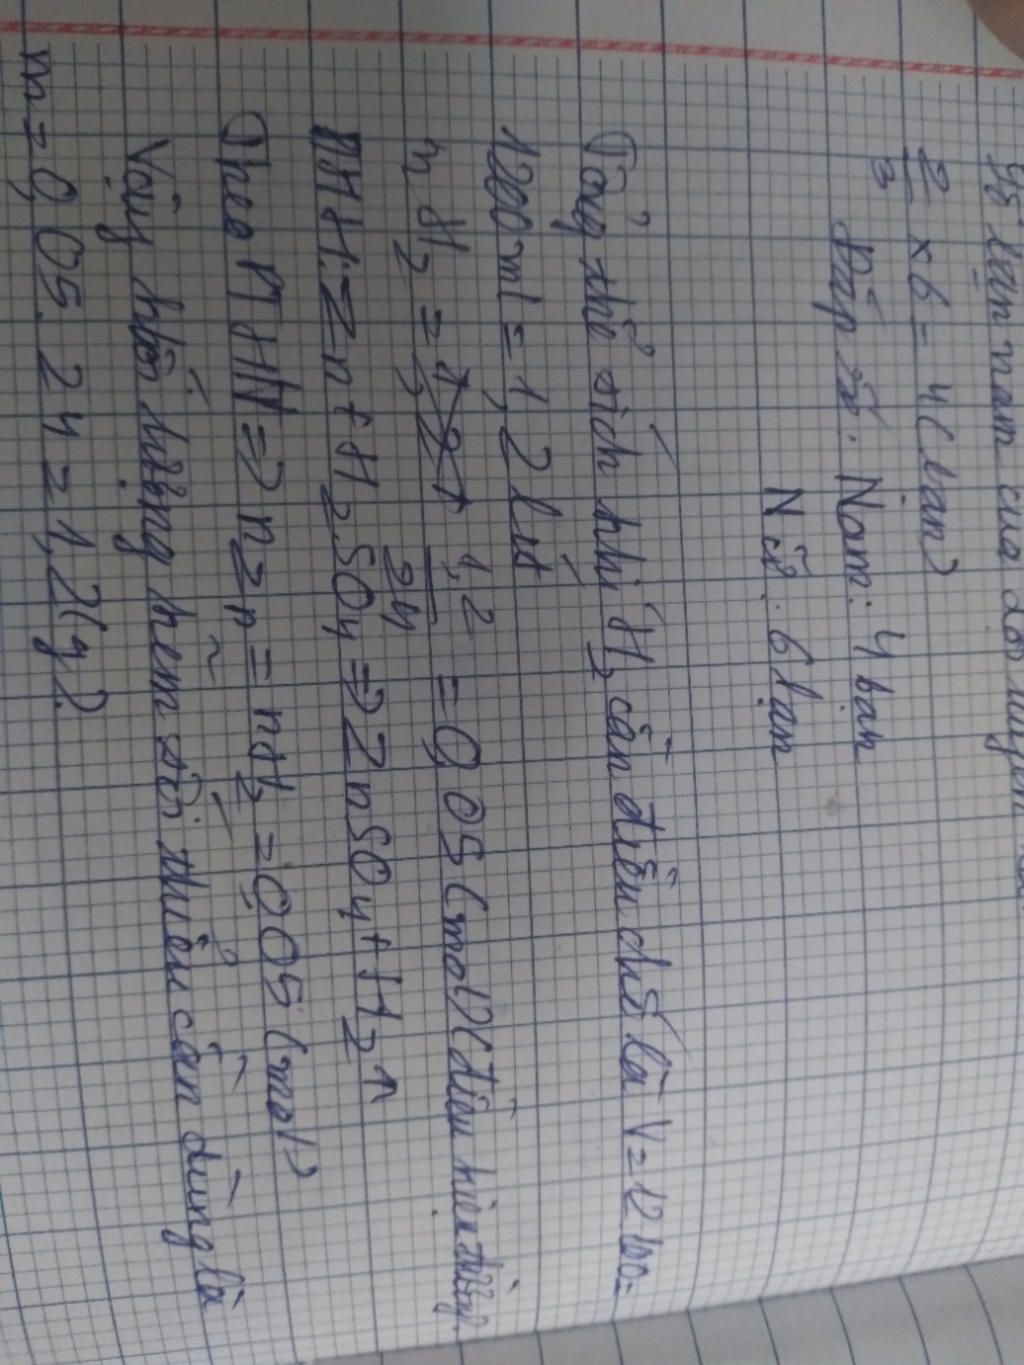 bạn nam của đội tuyển
2/3 × 6 = 4 (bạn)
Đáp số: Nam: 4 bạn
Nữ: 6 bạn
Tổng thể tích khí H₂ cần điều chế là V = 12.100 =
1200ml = 1,2 lít
n H₂ = 1,2/24 = 0,05 (mol) (điều kiện thường)
PTHH: Zn + H₂SO₄ => ZnSO₄ + H₂↑
Theo PTHH => nZn = nH₂ = 0,05 (mol)
Vậy khối lượng kẽm tối thiểu cần dùng là
m = 0,05. 24 = 1,2(g)